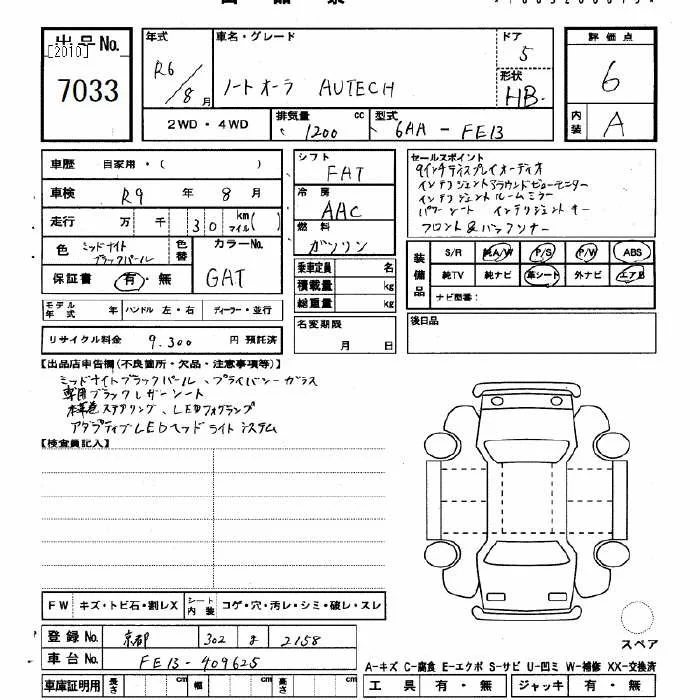 出品No.
[2010]
7033
年式
R6/8月
車名・グレード
ノートオーラ AUTECH
ドア
5
形状
HB
評価点
6
内装
A
2WD・4WD
排気量
1200 cc
型式
6AA - FE13
車歴 自家用・( )
車検 R9 年 8 月
走行 万 千 30 km マイル( )
色 ミッドナイトブラックパール
色替
カラーNo.
GAT
保証書 有・無
モデル年式 年 ハンドル 左・右 ディーラー・並行
リサイクル料金 9.300 円 預託済
シフト
FAT
冷房
AAC
燃料
ガソリン
乗車定員 名
積載量 kg
総重量 kg
名変期限
月 日
セールスポイント
9インチディスプレイオーディオ
インテリジェントアラウンドビューモニター
インテリジェントルームミラー
パワーシート インテリジェントキー
フロント&バックソナー
装備品
S/R 純A/W P/S P/W ABS
純TV 純ナビ 革シート 外ナビ エアB
ナビ型番:
後日品
【出品店申告欄(不良箇所・欠品・注意事項等)】
ミッドナイトブラックパール、プライバシーガラス
専用ブラックレザーシート
本革巻ステアリング、LEDフォグランプ
アダプティブLEDヘッドライトシステム
【検査員記入】
FW キズ・トビ石・割レX シート内装 コゲ・穴・汚レ・シミ・破レ・スレ
登録No. 京都 302 ま 2158
車台No. FE13-409625
車庫証明用 長さ cm 幅 cm 高さ cm
スペア
A-キズ C-腐食 E-エクボ S-サビ U-凹ミ W-補修 XX-交換済
工具 有・無 ジャッキ 有・無